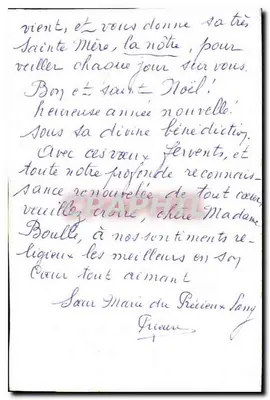 vient, et vous donne sa très
Sainte Mère, la nôtre, pour
veiller chaque jour sur vous.
Bon et saint Noël!
heureuse année nouvelle!
sous sa divine bénédiction.
Avec ces vœux fervents, et
toute notre profonde reconnais-
sance renouvelée de tout cœur,
veuillez croire, chère Madame
Boulle, à nos sentiments re-
ligieux les meilleurs en son
Cœur tout aimant
Sœur Marie du Précieux Sang